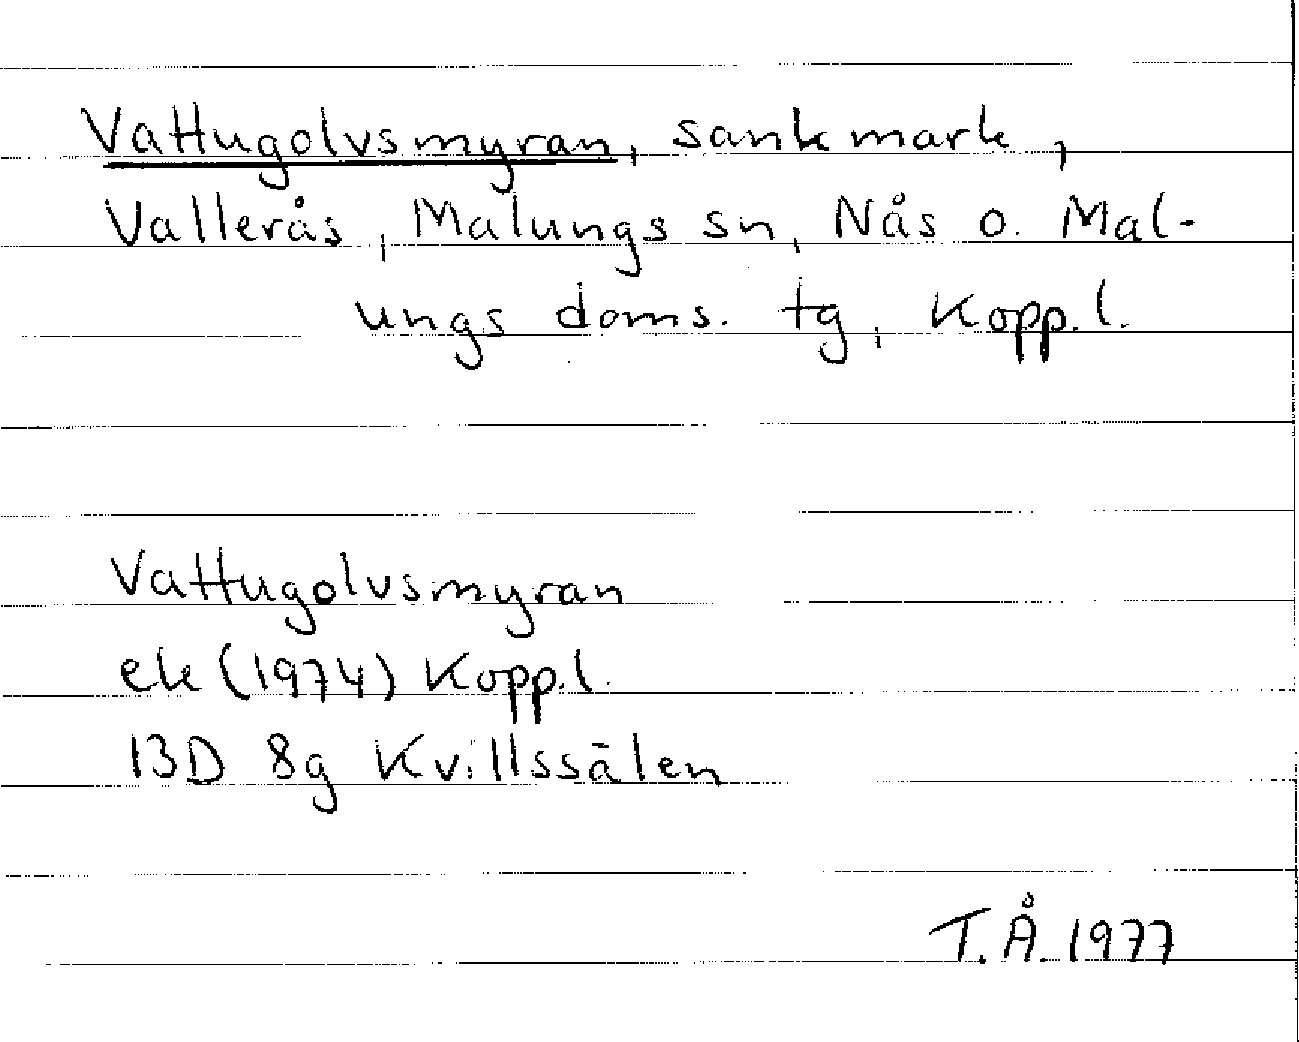 Vattugolvsmyran, sankmark,
Vallerås, Malungs sn, Nås o. Mal-
ungs doms. tg, Kopp. l.
Vattugolvsmyran
ek (1974) Kopp. l.
13D 8g Kvillssälen
T. Å. 1977